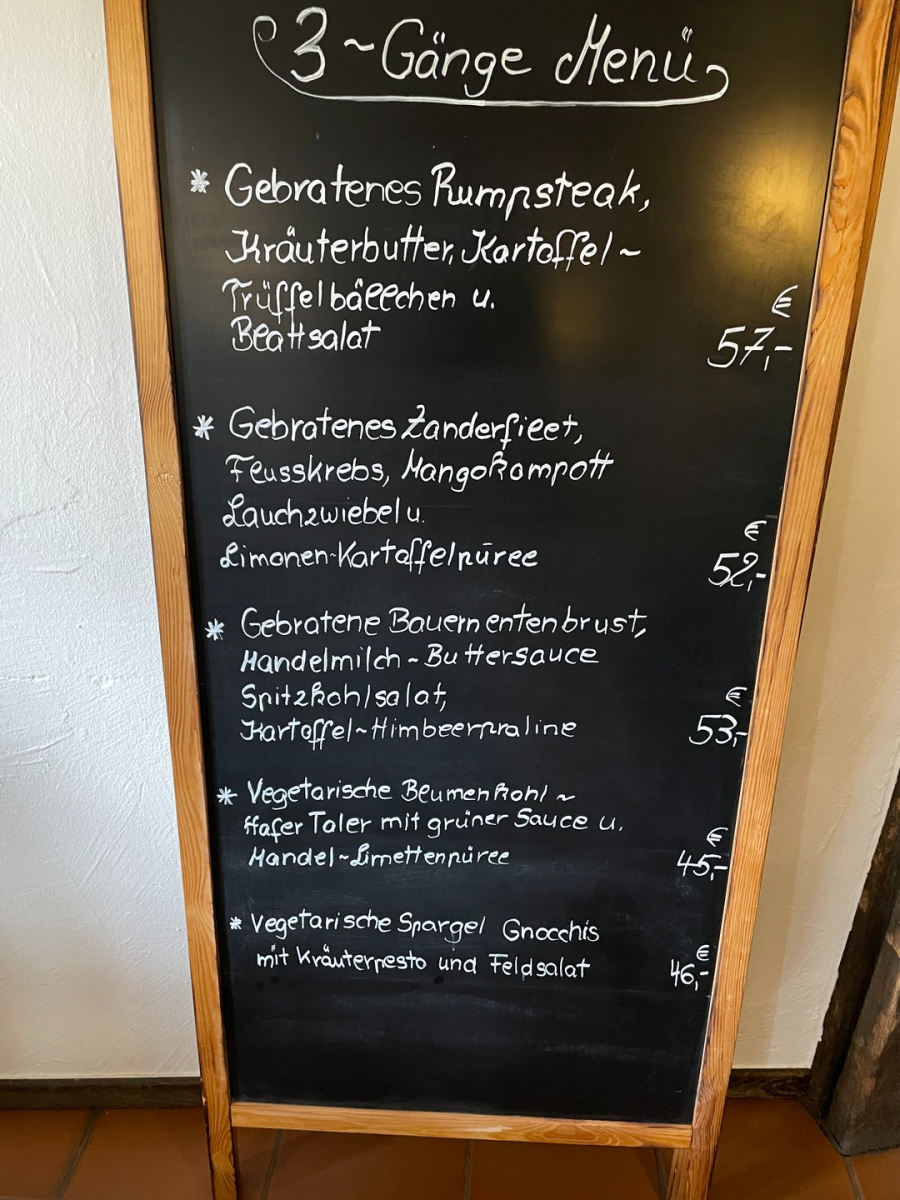 3~Gänge Menü
* Gebratenes Rumpsteak,
Kräuterbutter, Kartoffel~
Trüffelbällchen u.
Blattsalat
€
57,-
* Gebratenes Zanderfilet,
Flusskrebs, Mangokompott
Lauchzwiebel u.
Limonen-Kartoffelpüree
€
52,-
* Gebratene Bauernentenbrust,
Mandelmilch~Buttersauce
Spitzkohlsalat,
Kartoffel~Himbeerpraline
€
53,-
* Vegetarische Blumenkohl~
Hafer Taler mit grüner Sauce u.
Mandel~Limettenpüree
€
45,-
* Vegetarische Spargel Gnocchis
mit Kräuterpesto und Feldsalat
€
46,-